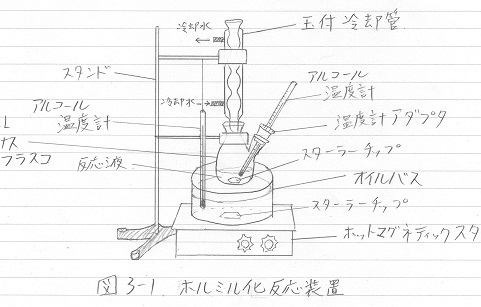 冷却水
玉付冷却管
スタンド
アルコール
温度計
冷却水
アルコール
温度計
温度計アダプタ
L
ナス
フラスコ
反応液
スターラーチップ
オイルバス
スターラーチップ
ホットマグネティックスタ
図3-1 ホルミル化反応装置